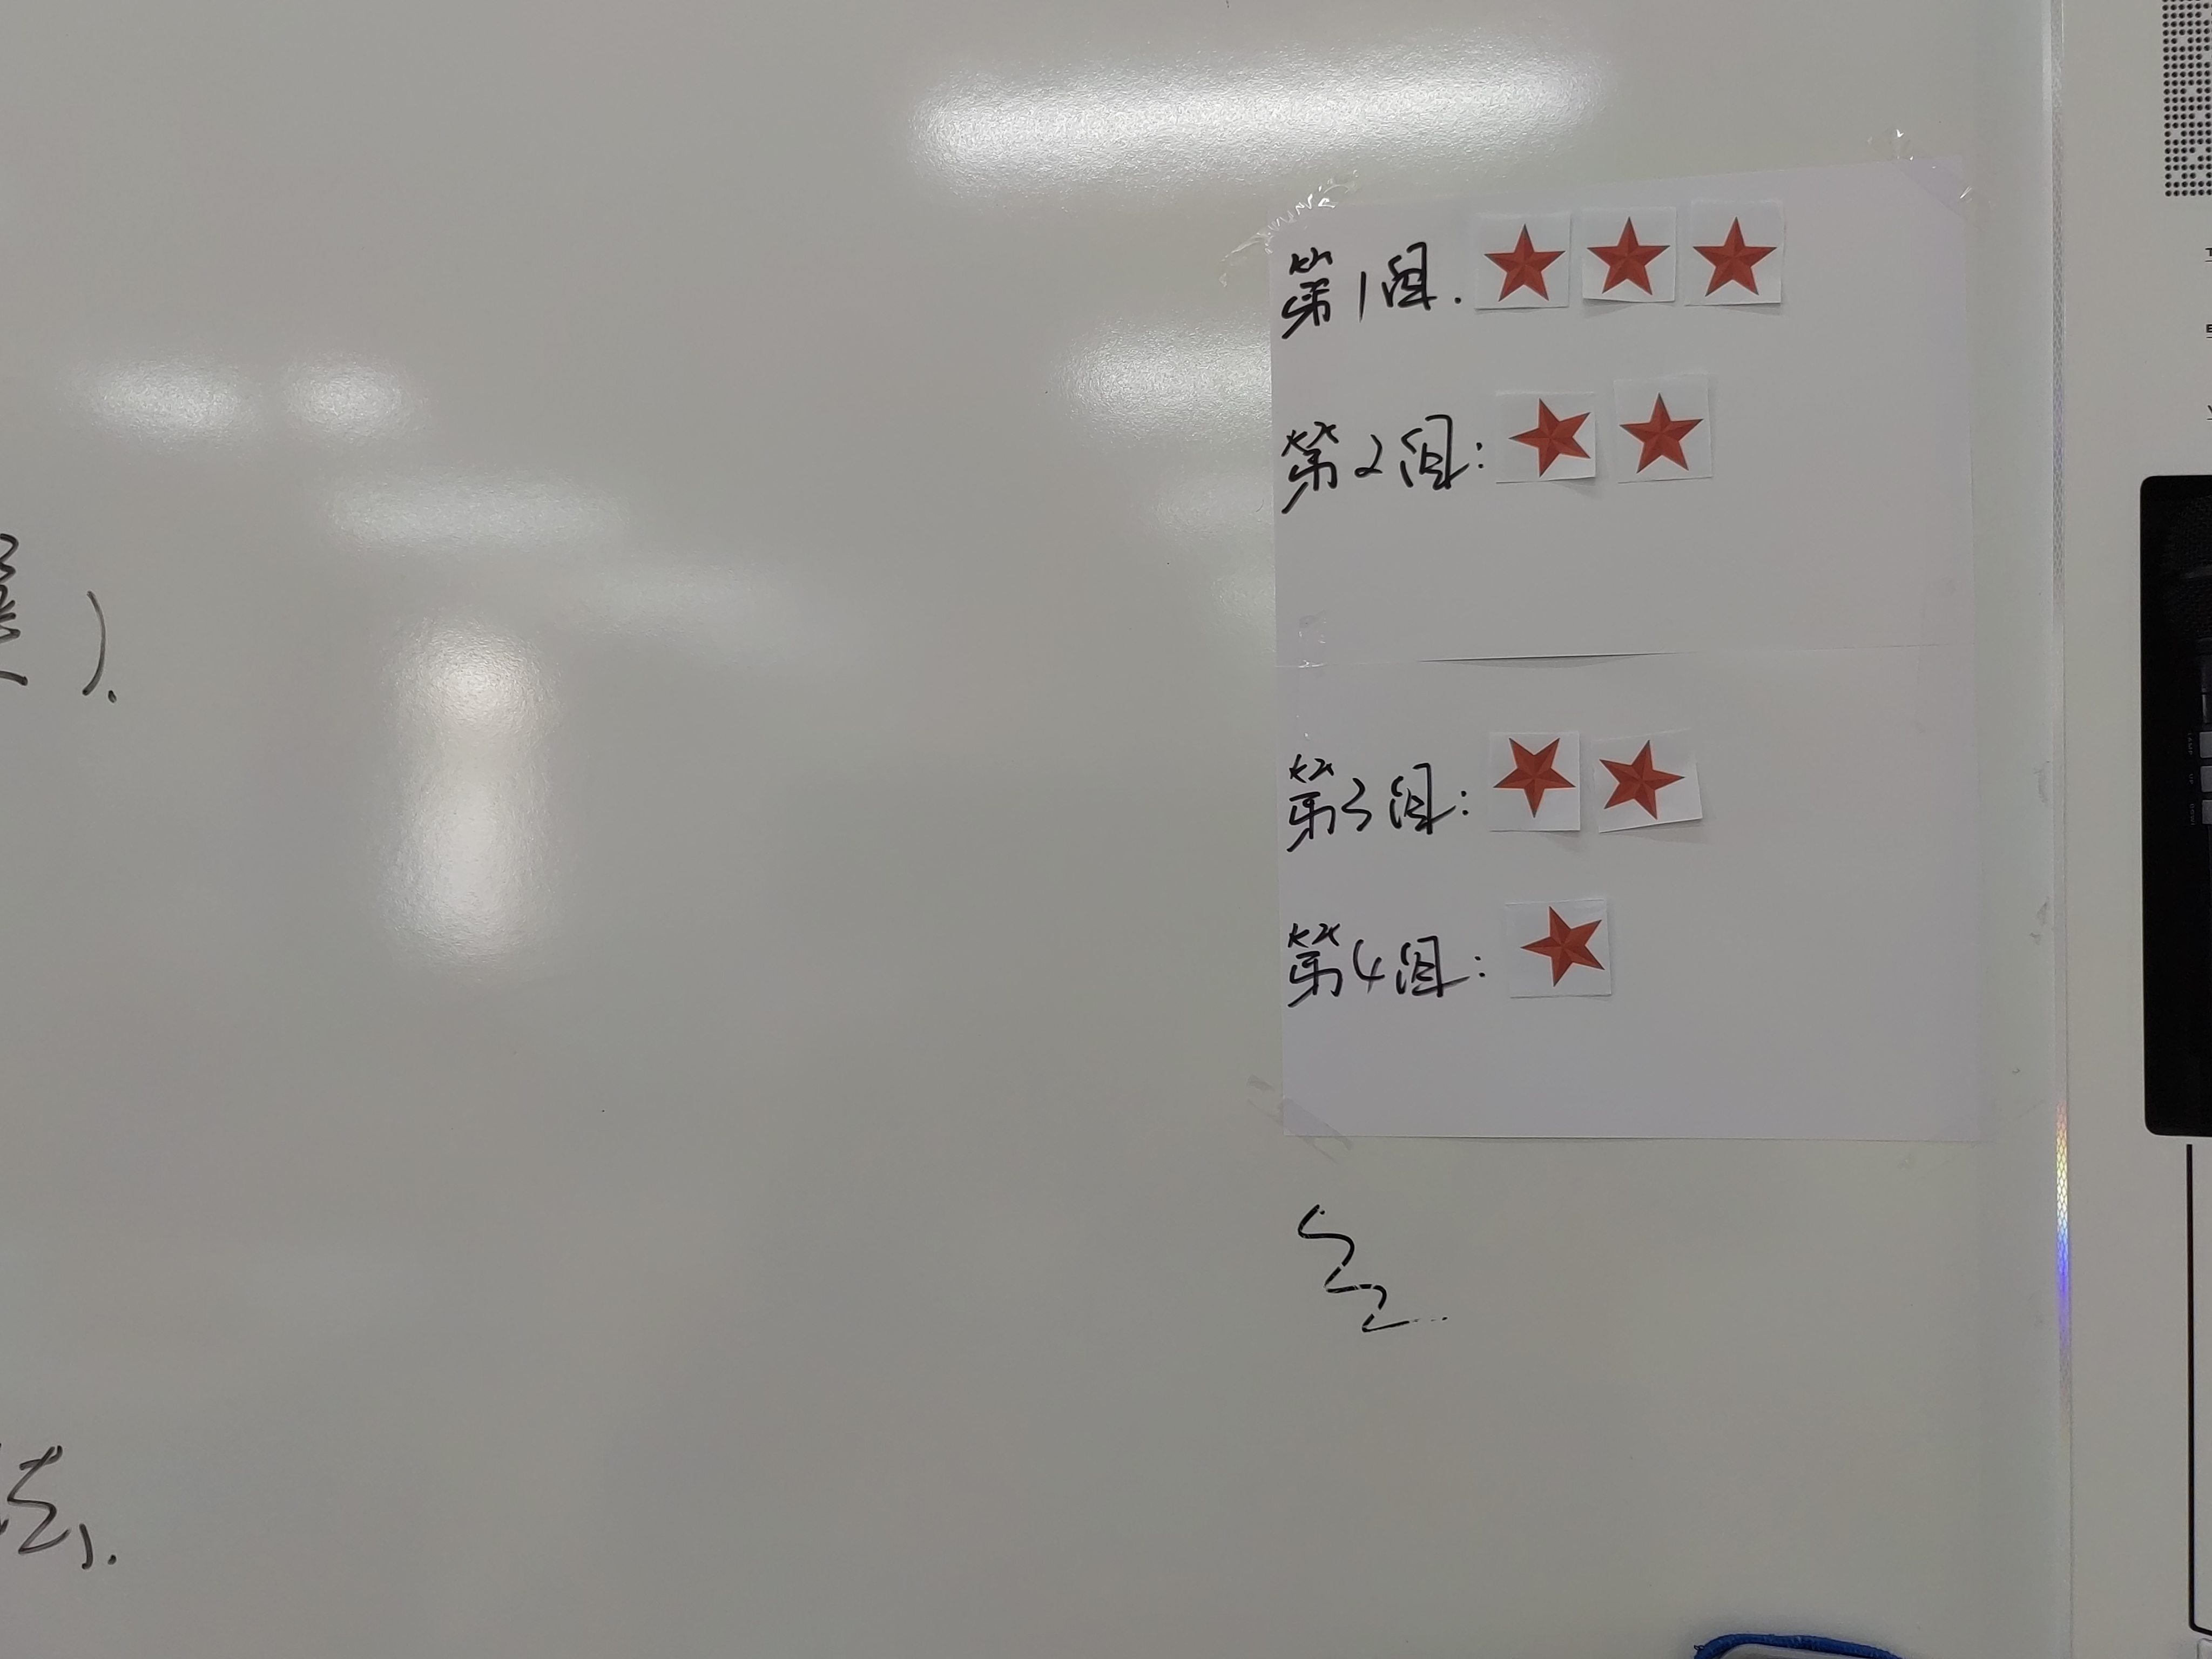 第1组.
第2组:
第3组:
第4组:
).
法).